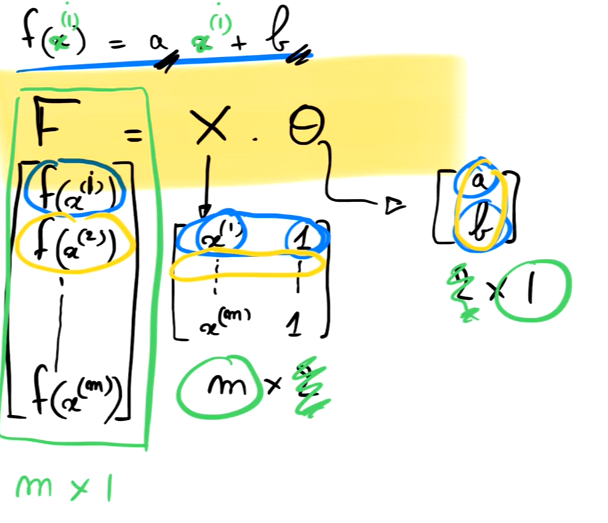 f(x⁽ⁱ⁾) = a x⁽ⁱ⁾ + b
F = X . θ
f(x⁽¹⁾)
f(x⁽²⁾)
f(x⁽ᵐ⁾)
x⁽¹⁾ 1
x⁽ᵐ⁾ 1
m × 2
a
b
2 × 1
m × 1